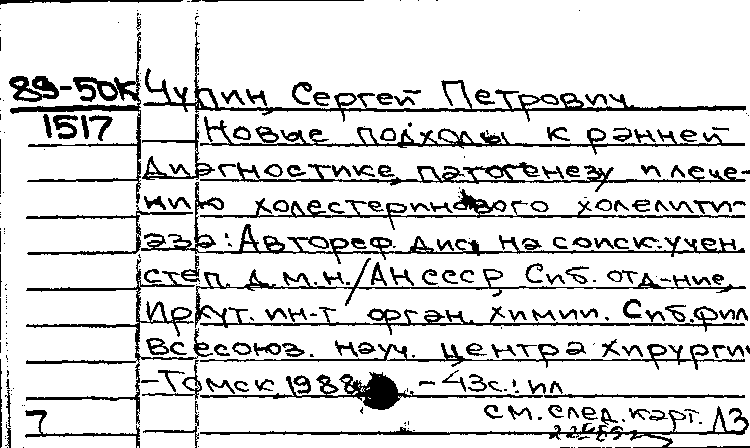 89-50К Чупин Сергей Петрович
1517 Новые подходы к ранней
диагностике, патогенезу и лече-
нию холестеринового холелити-
аза: Автореф. дис. на соиск. учен.
степ. д.м.н./АН СССР, Сиб. отд-ние,
Иркут. ин-т орган. химии. Сиб. фил.
Всесоюз. науч. центра хирургии
-Томск, 1988 -43с.: ил
см. след. карт. ЛЗ
7